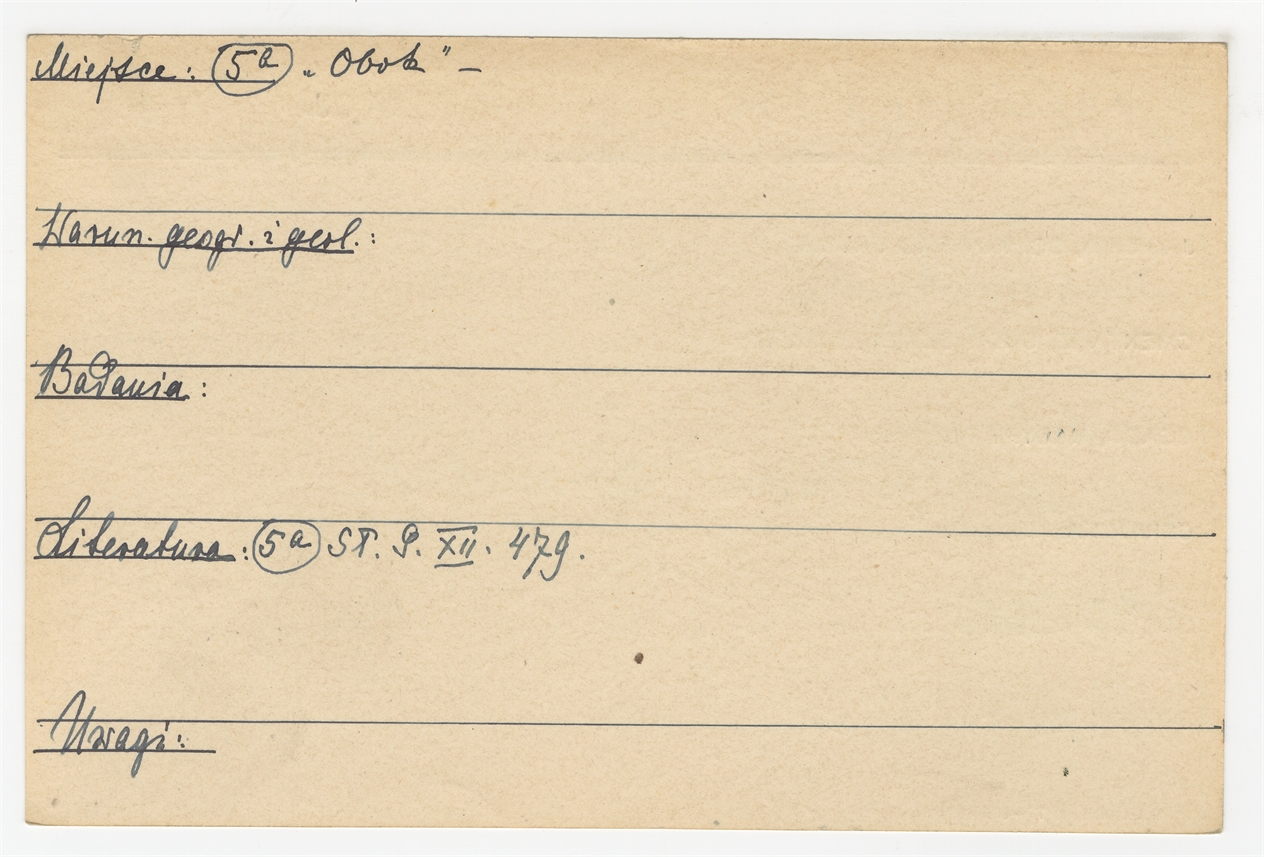 Miejsce: 5a „Obok" –
Warun. geogr. i geol.:
Badania:
Literatura: 5a ST. P. XII. 479.
Uwagi: